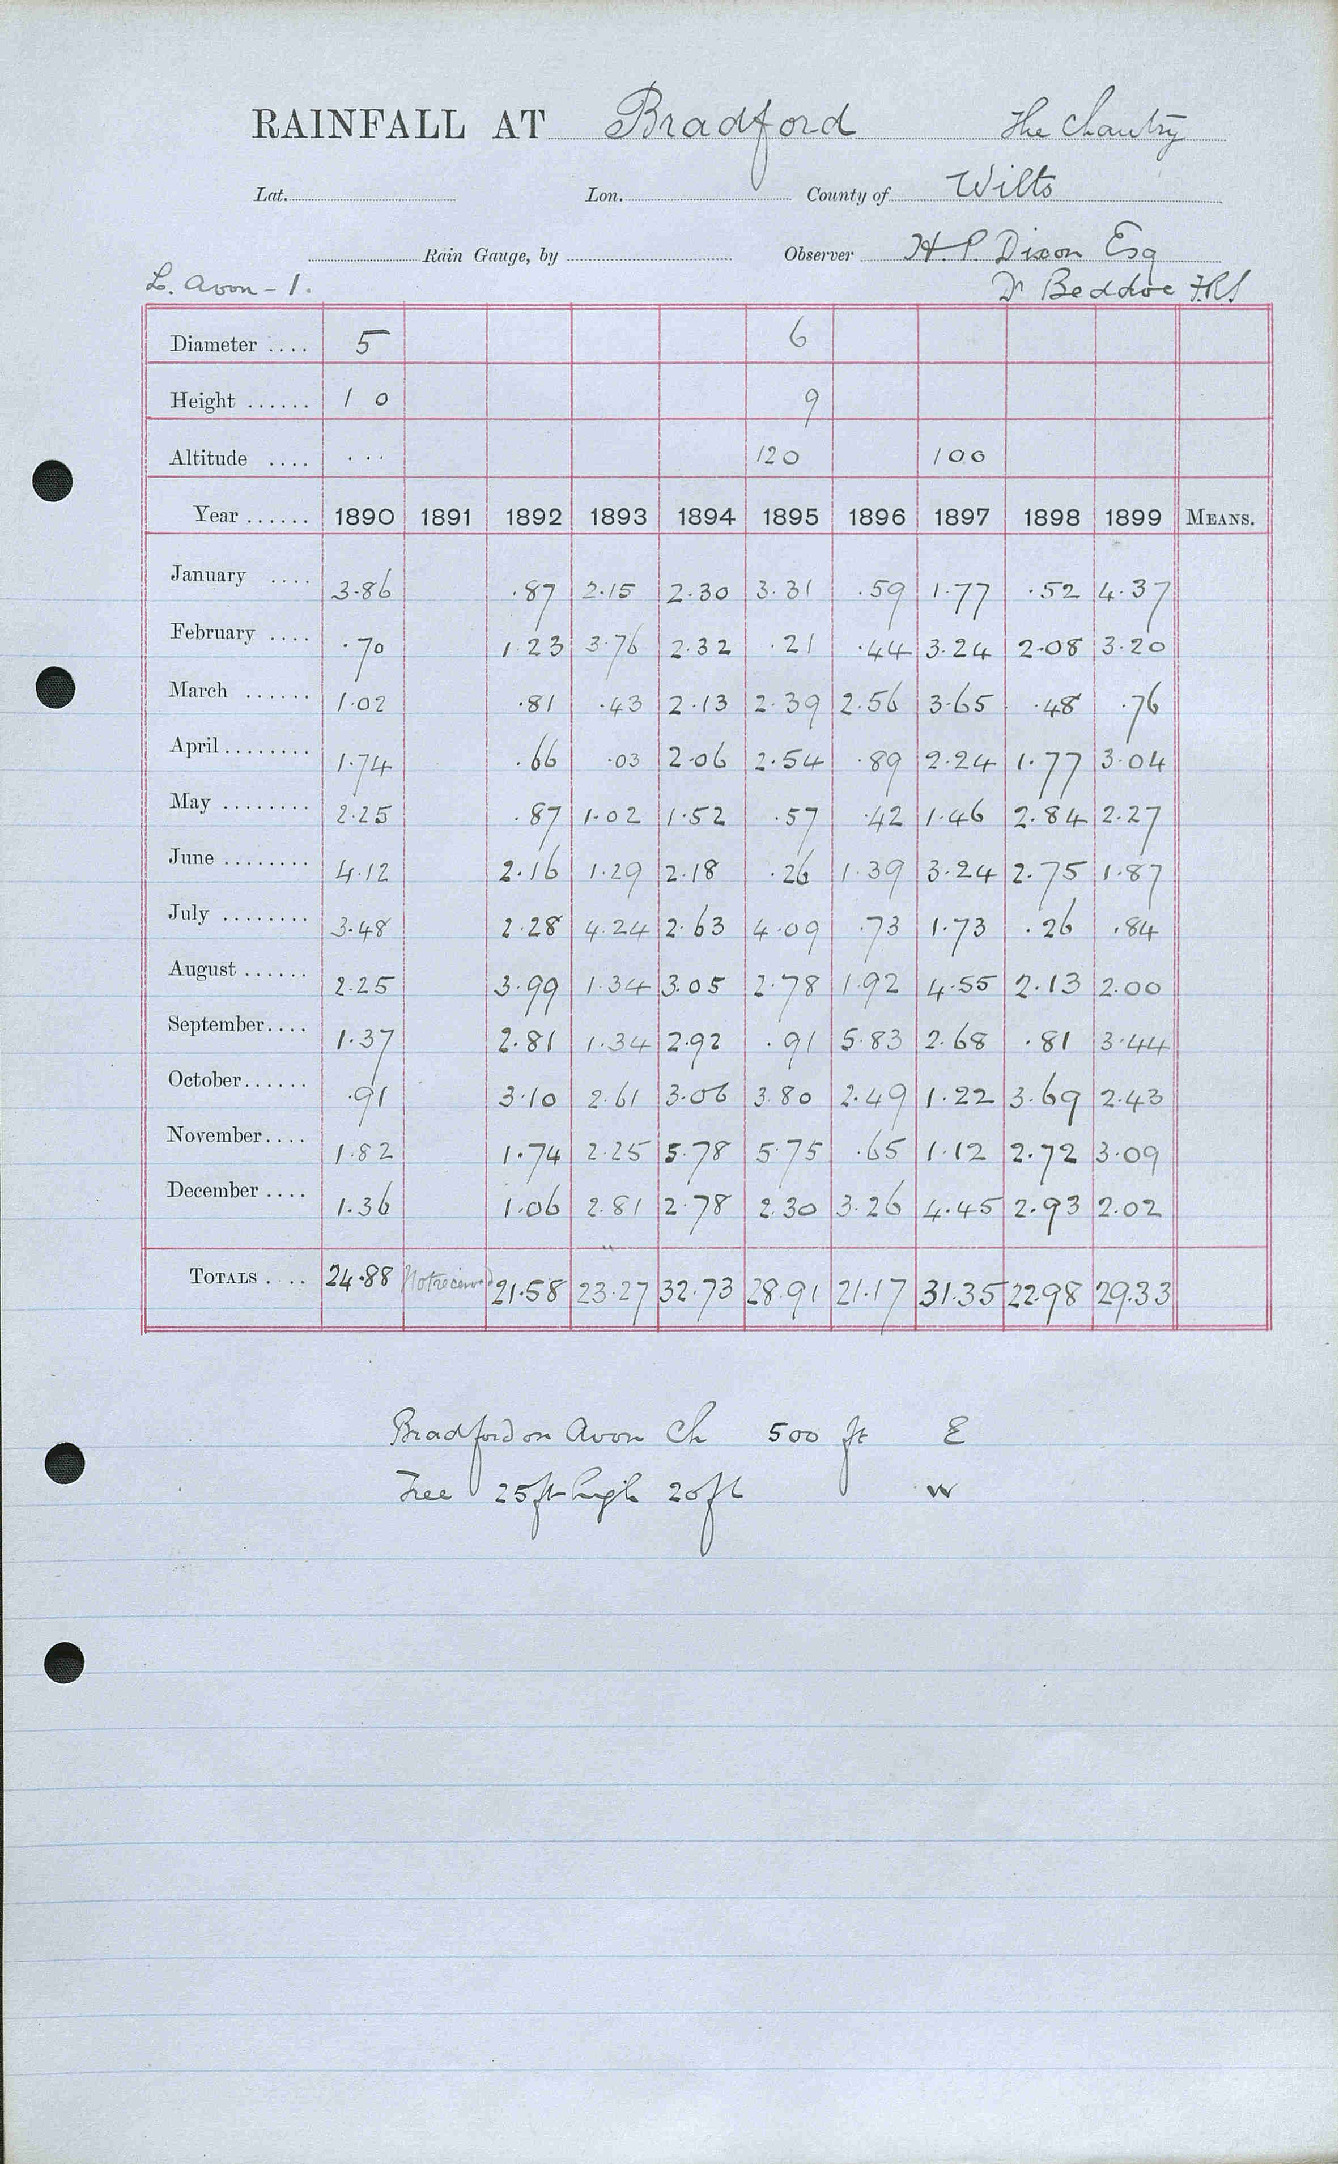 RAINFALL AT Bradford The Chantry
Lat. Lon. County of Wilts
Rain Gauge, by Observer H. P Dixon Esq
L. Avon - 1. Dr Beddoe F.R.S
Diameter .... 5 6
Height ...... 1 0 9
Altitude .... ... 120 100
Year ...... 1890 1891 1892 1893 1894 1895 1896 1897 1898 1899 MEANS.
January .... 3.86 .87 2.15 2.30 3.31 .59 1.77 .52 4.37
February .... .70 1.23 3.76 2.32 .21 .44 3.24 2.08 3.20
March ...... 1.02 .81 .43 2.13 2.39 2.56 3.65 .48 .76
April ........ 1.74 .66 .03 2.06 2.54 .89 2.24 1.77 3.04
May ........ 2.25 .87 1.02 1.52 .57 .42 1.46 2.84 2.27
June ........ 4.12 2.16 1.29 2.18 .26 1.39 3.24 2.75 1.87
July ........ 3.48 2.28 4.24 2.63 4.09 .73 1.73 .26 .84
August ...... 2.25 3.99 1.34 3.05 2.78 1.92 4.55 2.13 2.00
September.... 1.37 2.81 1.34 2.92 .91 5.83 2.68 .81 3.44
October...... .91 3.10 2.61 3.06 3.80 2.49 1.22 3.69 2.43
November.... 1.82 1.74 2.25 5.78 5.75 .65 1.12 2.72 3.09
December .... 1.36 1.06 2.81 2.78 2.30 3.26 4.45 2.93 2.02
TOTALS .... 24.88 Not received 21.58 23.27 32.73 28.91 21.17 31.35 22.98 29.33
Bradford on Avon Ch 500 ft E
Tree 25 ft high 20 ft W